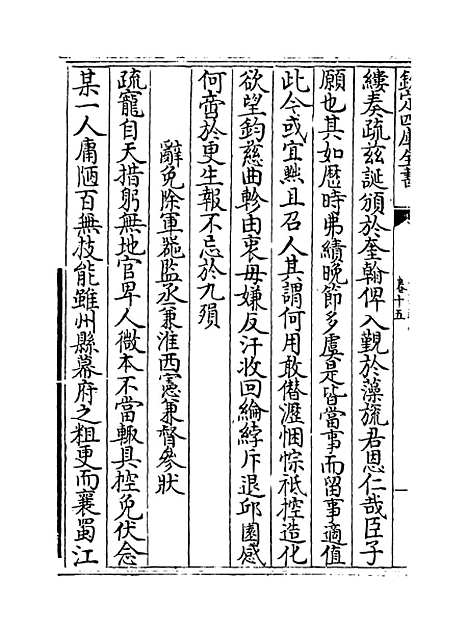 欽定四庫全書
卷十五
縷奏疏兹誕頒於奎翰俾入覲於藻旒君恩仁哉臣子
願也其如歷時弗績晚節多虞是皆當事而留事適值
此今或宜黙且召人其謂何用敢僭瀝悃悰祗控造化
欲望鈞慈曲軫由衷毋嫌反汗收回綸綍斥退邱園感
何啻於更生報不忘於九殞
辭免除軍器監丞兼淮西憲兼督參狀
疏寵自天措躬無地官卑人微本不當輙具控免伏念
某一人庸陋百無技能雖州縣幕府之粗更而襄蜀江